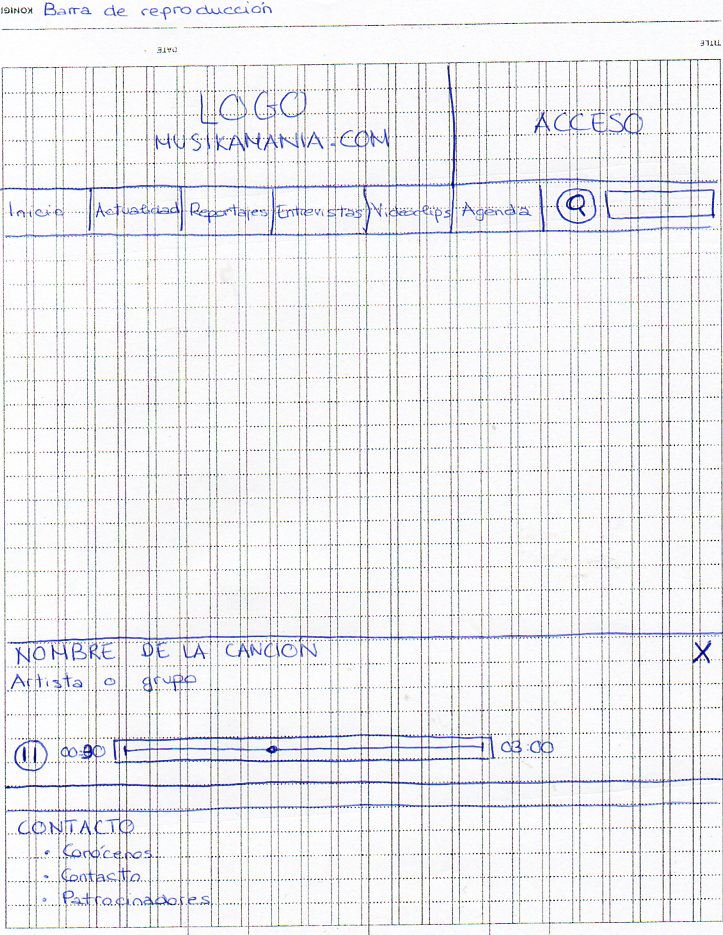 Barra de reproducción
KONIGI
DATE
TITLE
LOGO
MUSIKAMANIA.COM
ACCESO
Inicio Actualidad Reportajes Entrevistas Videoclips Agenda
NOMBRE DE LA CANCIÓN X
Artista o grupo
00:30 03:00
CONTACTO
• Conócenos
• Contacto
• Patrocinadores